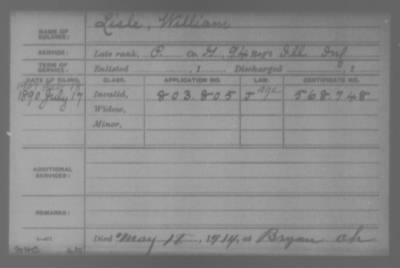 NAME OF SOLDIER: Lisle, William
SERVICE: Late rank, P. Co. G, 94 Reg't Ill Inf
TERM OF SERVICE: Enlisted , 1 Discharged , 1
DATE OF FILING. CLASS. APPLICATION NO. LAW. CERTIFICATE NO.
1890 July 17 Invalid, 803.805 J age 568.748
Widow,
Minor,
ADDITIONAL SERVICES:
REMARKS:
Died May 18, 1914, at Bryan Oh